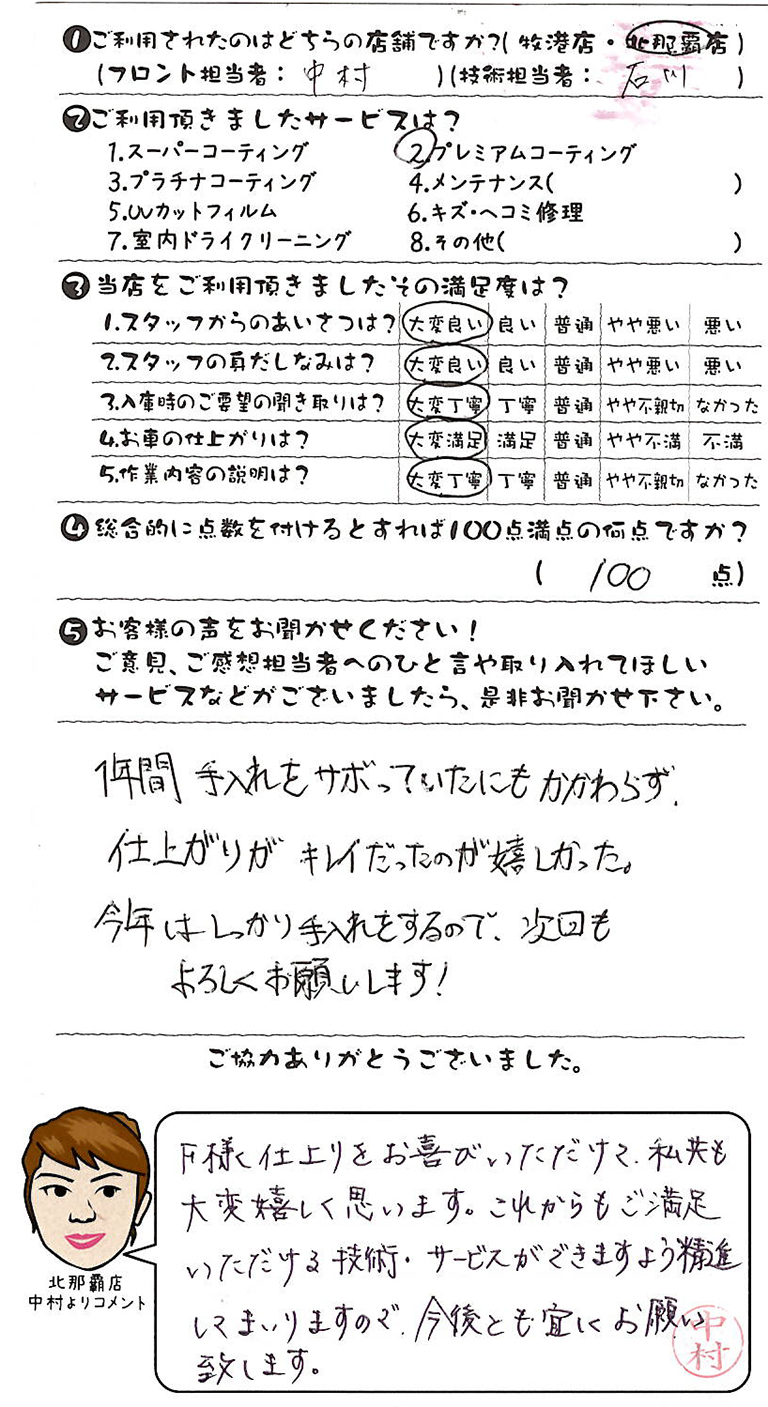 ❶ご利用されたのはどちらの店舗ですか?(牧港店・北那覇店)
(フロント担当者：中村)(技術担当者：石川)
❷ご利用頂きましたサービスは?
1.スーパーコーティング 2.プレミアムコーティング
3.プラチナコーティング 4.メンテナンス( )
5.UVカットフィルム 6.キズ・ヘコミ修理
7.室内ドライクリーニング 8.その他( )
❸当店をご利用頂きましたその満足度は?
1.スタッフからのあいさつは? 大変良い 良い 普通 やや悪い 悪い
2.スタッフの身だしなみは? 大変良い 良い 普通 やや悪い 悪い
3.入庫時のご要望の聞き取りは? 大変丁寧 丁寧 普通 やや不親切 なかった
4.お車の仕上がりは? 大変満足 満足 普通 やや不満 不満
5.作業内容の説明は? 大変丁寧 丁寧 普通 やや不親切 なかった
❹総合的に点数を付けるとすれば100点満点の何点ですか?
(100点)
❺お客様の声をお聞かせください!
ご意見、ご感想担当者へのひと言や取り入れてほしい
サービスなどがございましたら、是非お聞かせ下さい。
1年間 手入れをサボっていたにもかかわらず、
仕上がりが キレイだったのが嬉しかった。
今年はしっかり手入れをするので、次回も
よろしくお願いします!
ご協力ありがとうございました。
F様、仕上りをお喜びいただけて、私共も
大変嬉しく思います。これからもご満足
いただける技術・サービスができますよう精進
してまいりますので、今後とも宜しくお願い
致します。
中村
北那覇店
中村よりコメント